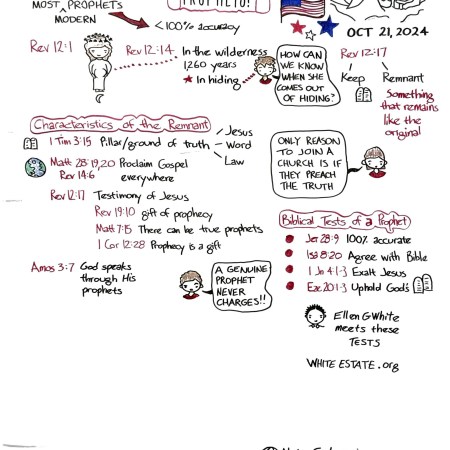 MOST PROPHETS
MODERN
<100% accuracy
OCT 21, 2024
Rev 12:1
Rev 12:14
In the wilderness
1260 years
In hiding
HOW CAN
WE KNOW
WHEN SHE
COMES OUT
OF HIDING?
Rev 12:17
Keep
Remnant
Something
that remains
like the
original
Characteristics of the Remnant
1 Tim 3:15 Pillar/ground of truth
Jesus
Word
Law
Matt 28:19,20 Proclaim Gospel
Rev 14:6 everywhere
Rev 12:17 Testimony of Jesus
Rev 19:10 gift of prophecy
Matt 7:15 There can be true prophets
1 Cor 12:28 Prophecy is a gift
Amos 3:7 God speaks
through His
prophets
A GENUINE
PROPHET
NEVER
CHARGES!!
ONLY REASON
TO JOIN A
CHURCH IS IF
THEY PREACH
THE TRUTH
Biblical Tests of a Prophet
Jer 28:9 100% accurate
Isa 8:20 Agree with Bible
1 Jn 4:1-3 Exalt Jesus
Eze 20:1-3 Uphold God's
Ellen G White
meets these
TESTS
WHITE ESTATE.org